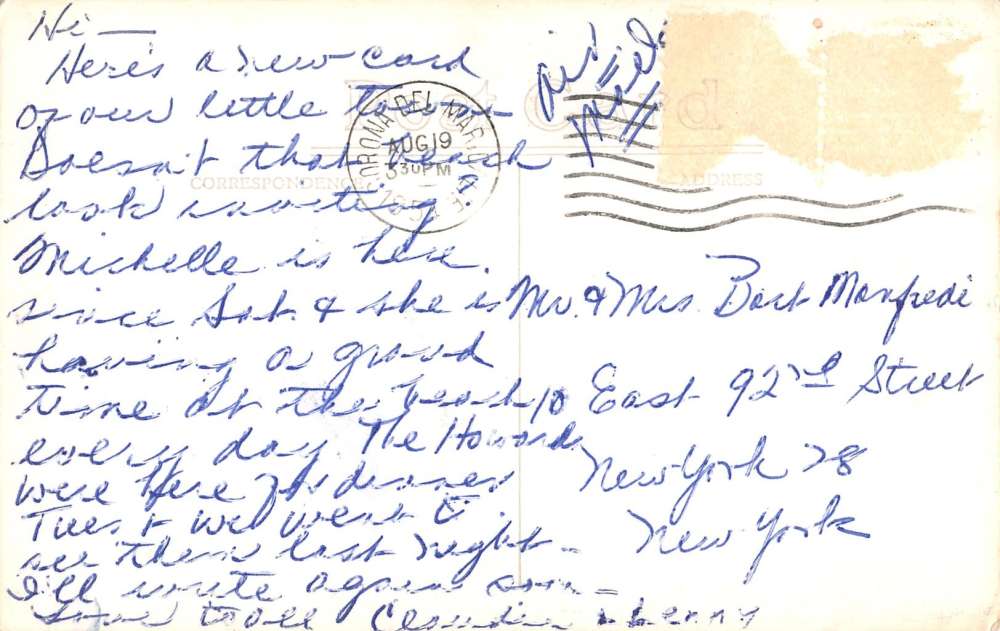 Hi —
Here's a new card
of our little town
Doesn't that beach
look inviting
Michelle is here
since Sat. & she is
having a grand
time at the beach
every day. The Howards
were here for dinner
Tues & we went to
see them last night —
I'll write again soon —
Love to all Claudia & Lenny
Air
Mail
Post Card
CORONA DEL MAR
AUG 19
330 PM
CORRESPONDENCE
ADDRESS
Mr. & Mrs Bart Manfredi
10 East 92nd Street
New York 28
New York